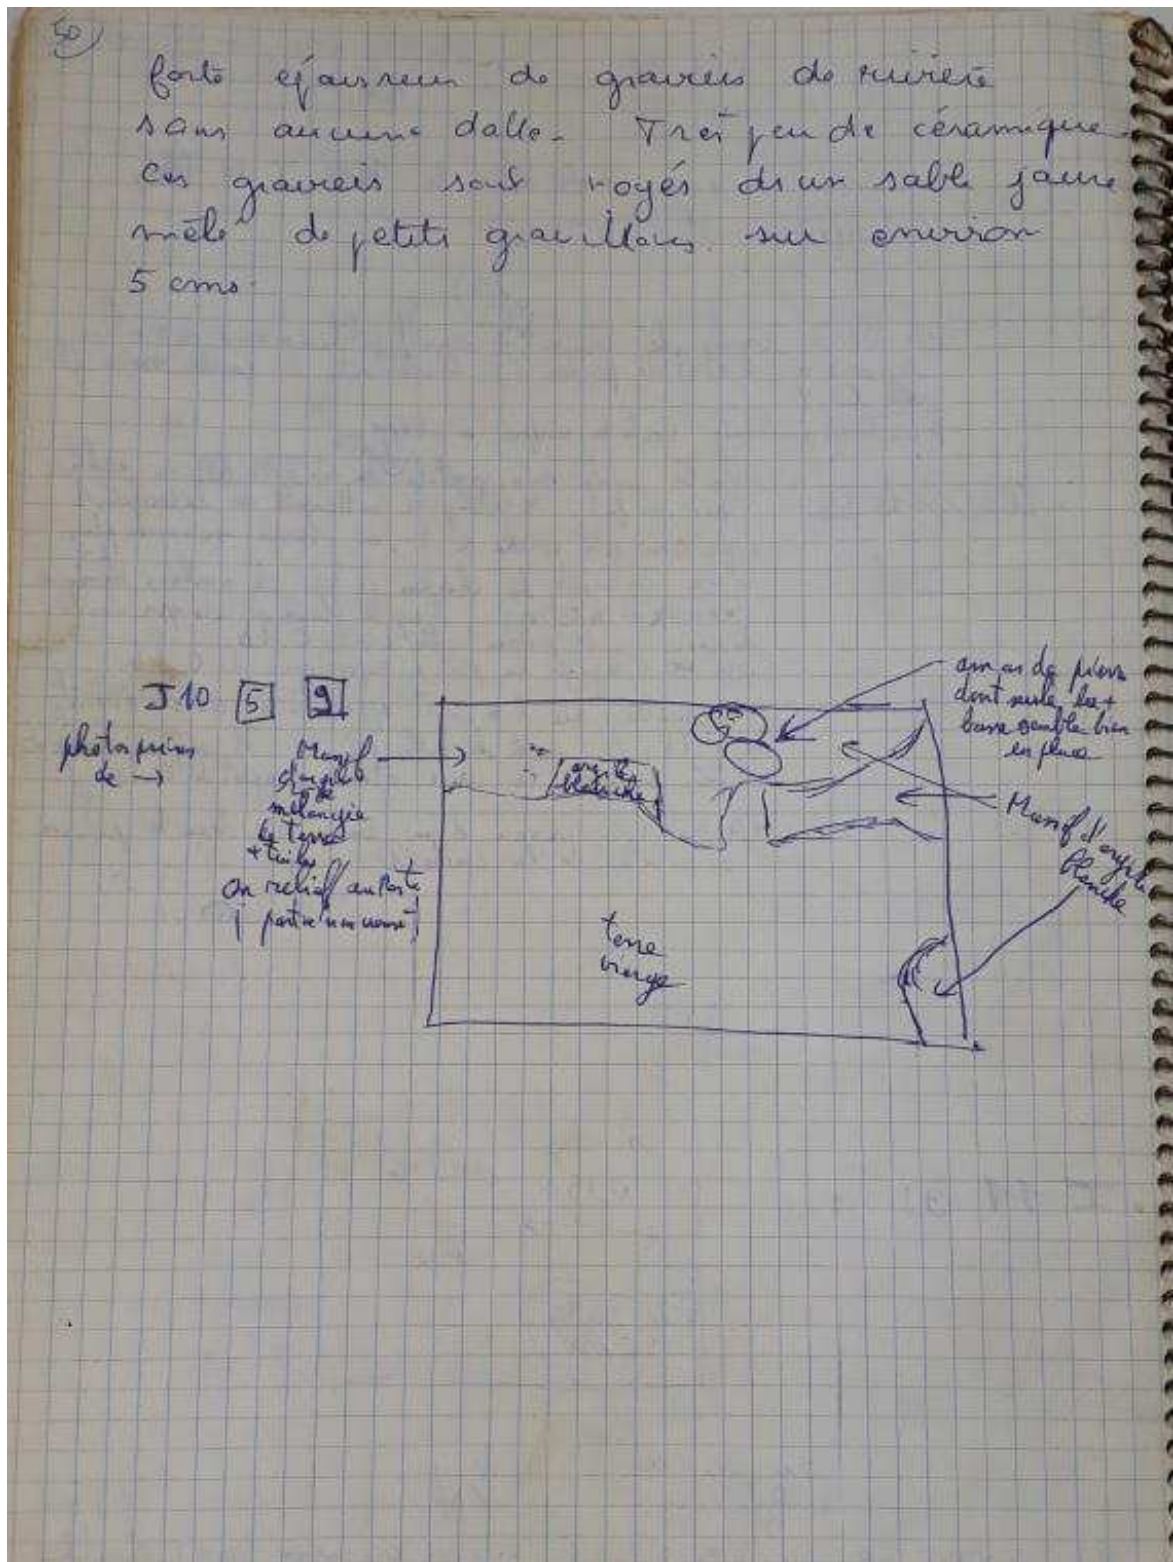 50
forte épaisseur de graviers de rivière
sans aucune dalle. Très peu de céramique
Ces graviers sont noyés ds un sable jaune
mêlé de petits gravillons sur environ
5 cms.
J10 5 9
photos prises
de →
Massif
d'argile
mélangée
de terre
+ tuiles
en relief
argile
blanche
amas de pierres
dont seule la +
basse semble bien
en place
Massif d'argile
blanche
terre
vierge